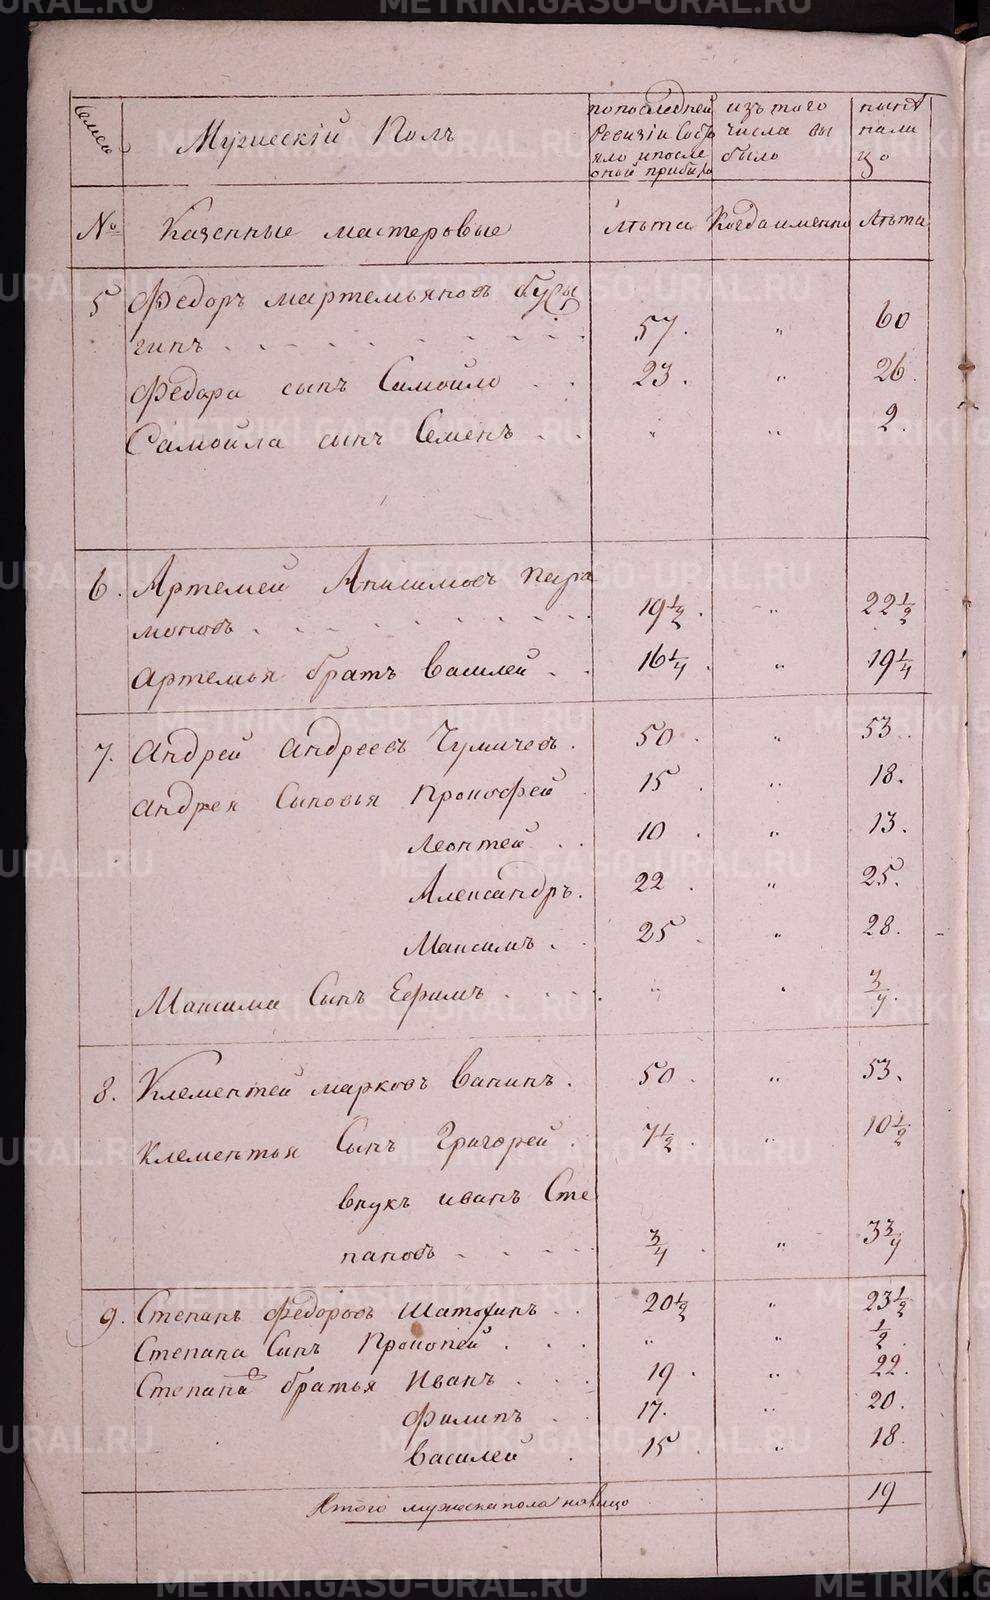 METRIKI.GASO-URAL.RU
Семьи
Мужескій Полъ
попоследней
Ревизіи Состо
яло ипосле
оной прибыло
изъ того
числа вы
было
ныне
нали
цо
№
Казенные мастеровые
Лѣта
Когдаименно
Лѣта
5 Федоръ мартемьяновъ бусы
гинъ 57. „ 60
Федора сынъ Самойло 23. „ 26.
Самойла сынъ Семенъ „ „ 2.
6. Артемей Анисимовъ пара
моновъ 19½. „ 22½
Артемья братъ Василей 16¼. „ 19¼
7. Андрей Андреевъ Чумичевъ. 50. „ 53.
Андрея Сыновья Прокофей 15. „ 18.
Леонтей 10. „ 13.
Александръ. 22. „ 25.
Максимъ. 25. „ 28.
Максима Сынъ Ефимъ „ „ ¾.
8. Клементей марковъ Ванинъ. 50. „ 53.
Клементья Сынъ Григорей. 7½. „ 10½
внукъ иванъ Сте
пановъ ¾. „ 3¾
9. Степанъ Федоровъ Шатохинъ 20½ „ 23½
Степана Сынъ Прокопей „ „ ½.
Степана братья Иванъ 19. „ 22.
Филипъ 17. „ 20.
Василей 15. „ 18.
Итого мужескапола налицо 19